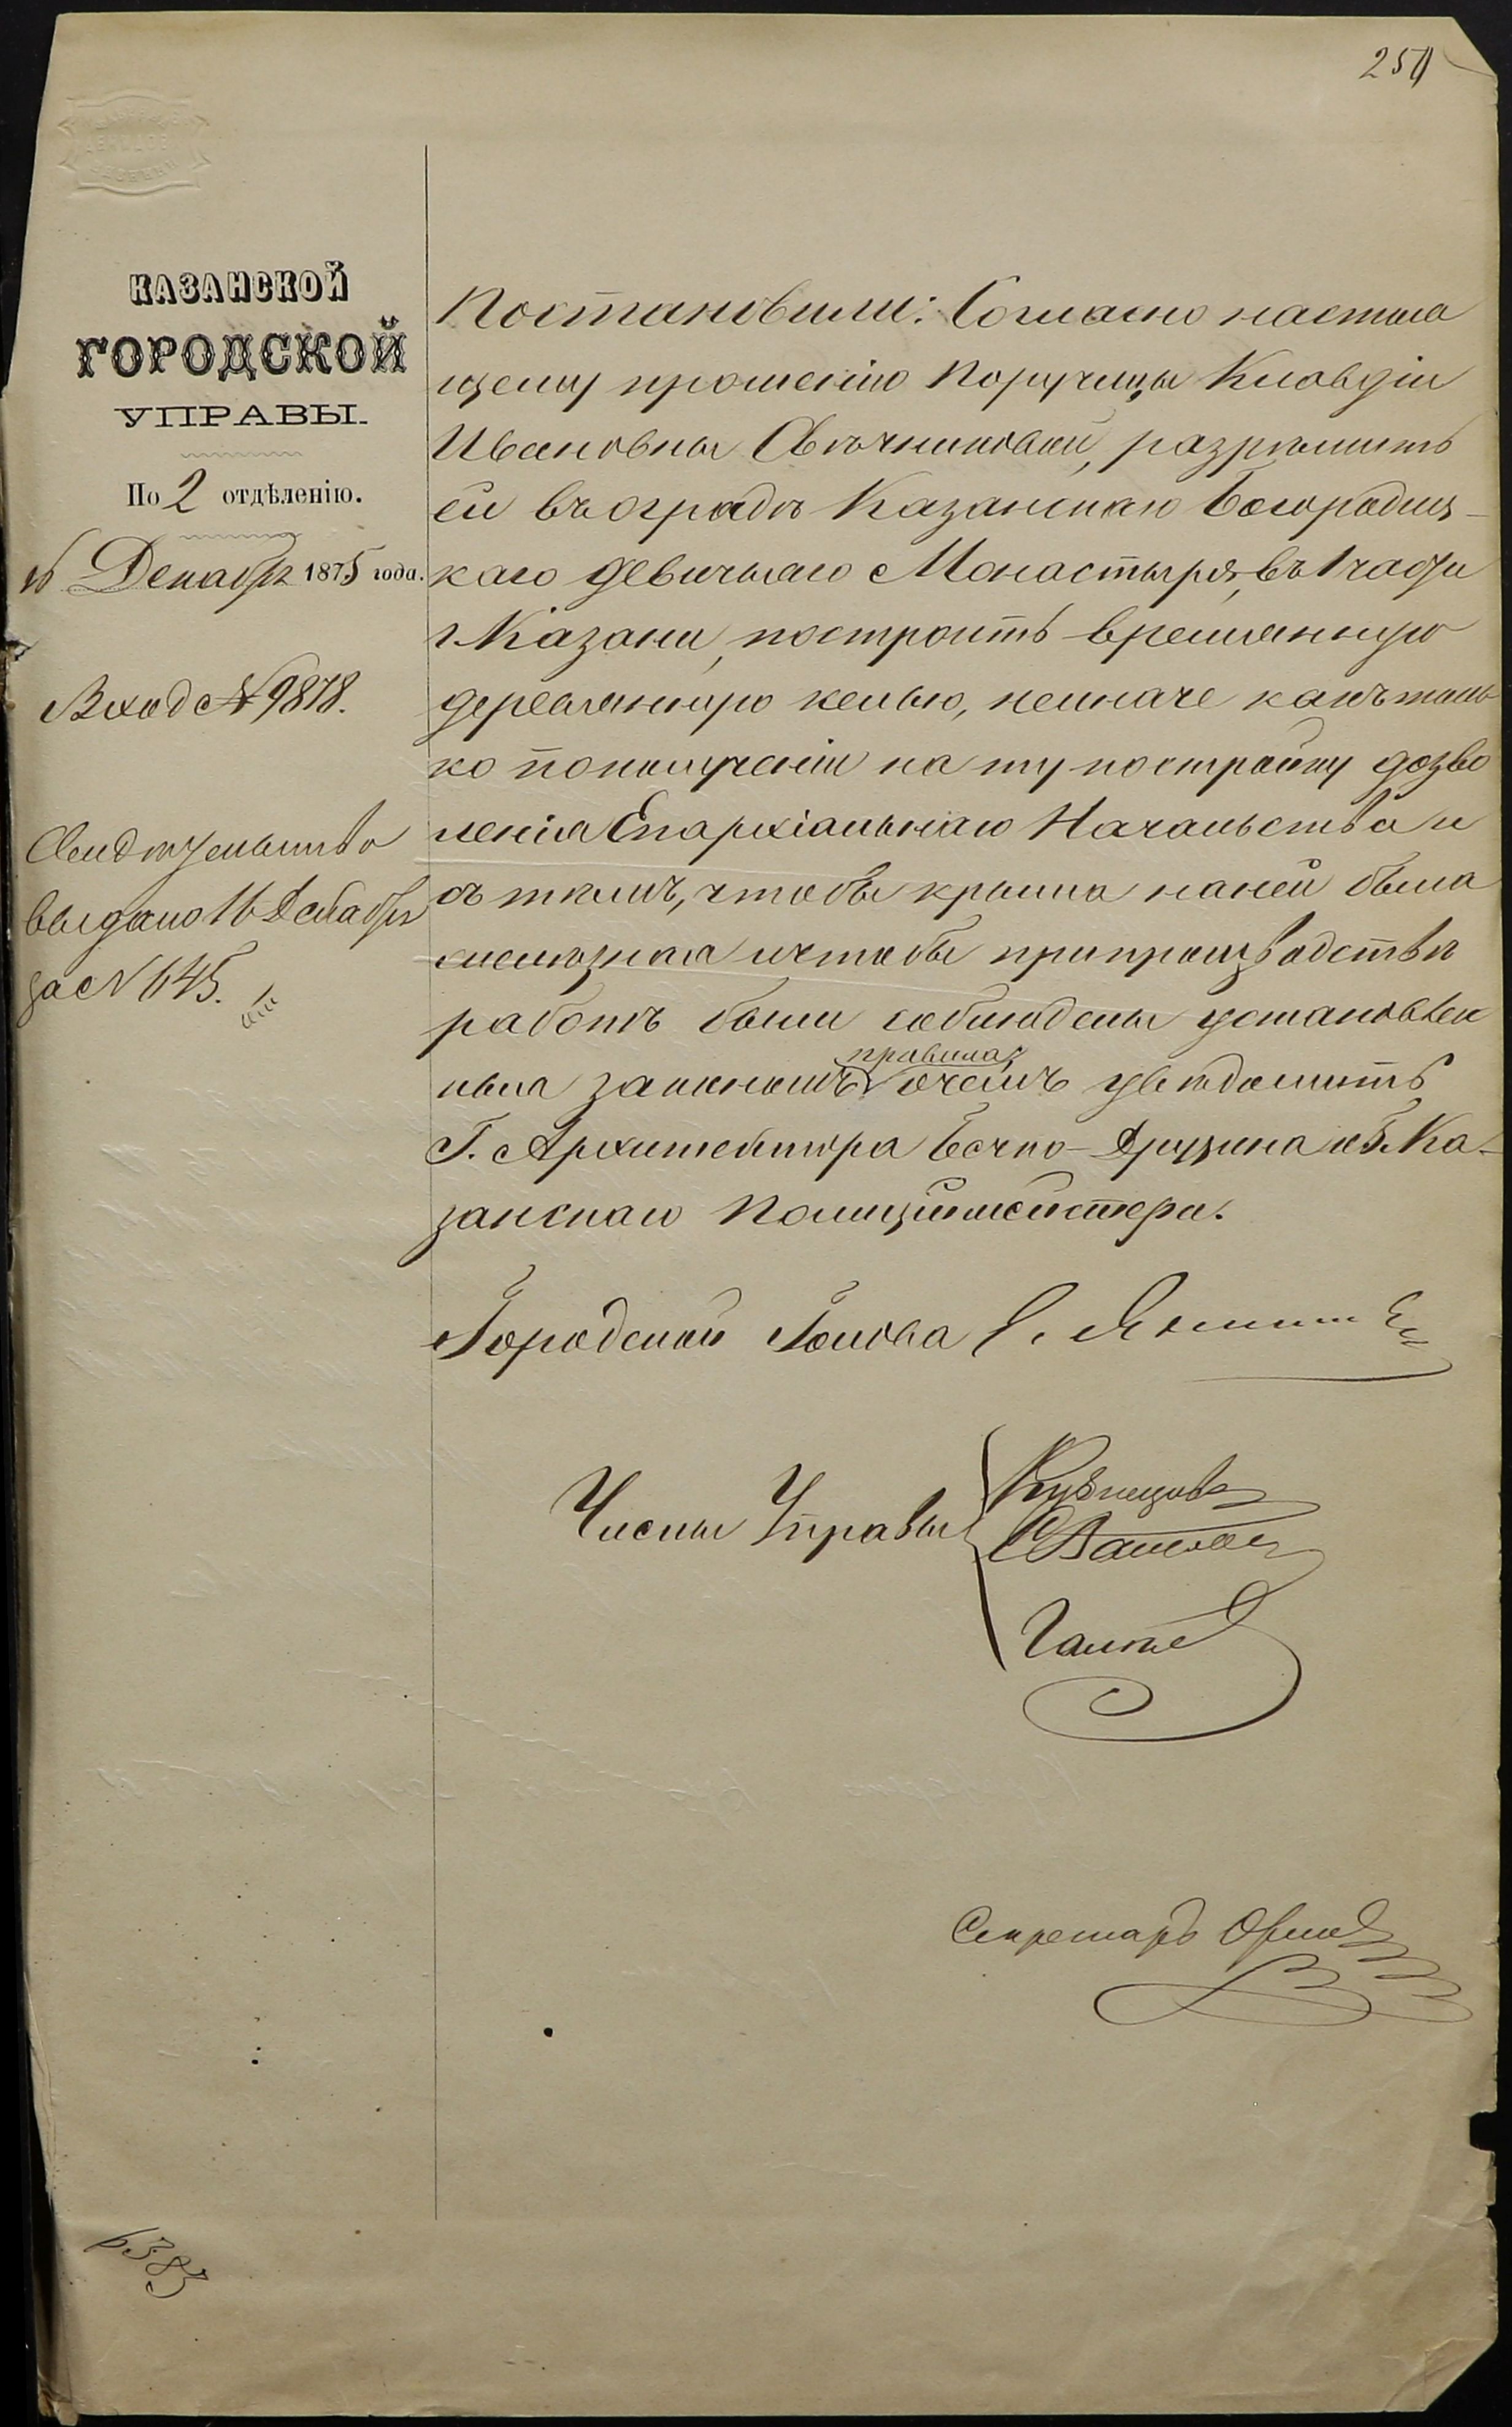 250
КАЗАНСКОЙ
ГОРОДСКОЙ
УПРАВЫ.
По 2 отдѣленію.
16 Декабря 1875 года.
Вход №9878.
Свидѣтельство
выдано 16 Декабря
за № 645.
Постановили: Согласно настоя
щему прошенію Поручицы Клавдіи
Ивановны Свѣчниковой, разрѣшить
ей въ оградѣ Казанскаго Богородиц-
каго девичьяго Монастыря, въ 1 части
г. Казани, построить временную
деревянную келью, неиначе какъ толь
ко пополученіи на ту постройку дозво
ленія Епархіальнаго Начальства и
съ тѣмъ, чтобы крыша наней была
желѣзная ичтобы припроизводствѣ
работъ были соблюдены установлен
правила,
ныя закономъ очемъ увѣдомить
Г. Архитектора Бечко-Друзина и Г. Ка-
занскаго Полиціймейстера.
Городской Голова
Члены Управы
Кузнецовъ
Секретарь Орловъ
6383